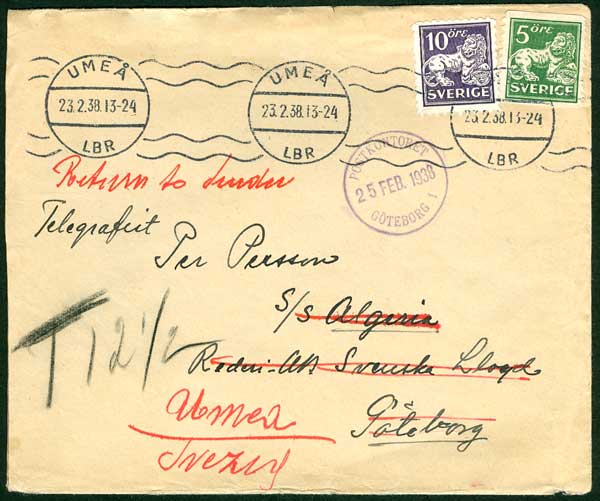 10 ÖRE
SVERIGE
5 ÖRE
SVERIGE
UMEÅ
23.2.38.13-24
LBR
UMEÅ
23.2.38.13-24
LBR
23.2.38.13-24
LBR
POSTKONTORET
25 FEB. 1938
GÖTEBORG 1
Return to Sender
Telegrafist
Per Persson
S/s Algeria
Rederi-AB Svenska Lloyd
Göteborg
T 12½
Umea